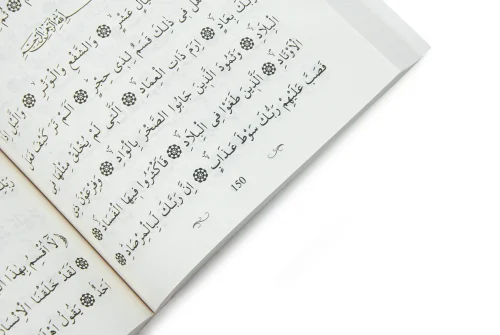 يَالٍ عَشْرٍ ۞ وَالشَّفْعِ وَالْوَتْرِ ۞ وَالَّيْلِ
هَلْ فِي ذَلِكَ قَسَمٌ لِذِي حِجْرٍ ۞ أَلَمْ تَرَ كَيْفَ فَعَلَ
رَبُّكَ بِعَادٍ ۞ إِرَمَ ذَاتِ الْعِمَادِ ۞ الَّتِي لَمْ يُخْلَقْ مِثْلُهَا فِي
الْبِلَادِ ۞ وَثَمُودَ الَّذِينَ جَابُوا الصَّخْرَ بِالْوَادِ ۞ وَفِرْعَوْنَ ذِي
الْأَوْتَادِ ۞ الَّذِينَ طَغَوْا فِي الْبِلَادِ ۞ فَأَكْثَرُوا فِيهَا الْفَسَادَ ۞
فَصَبَّ عَلَيْهِمْ رَبُّكَ سَوْطَ عَذَابٍ ۞ إِنَّ رَبَّكَ لَبِالْمِرْصَادِ ۞
150
لَا أُقْسِمُ بِهَذَا
لَقَدْ خَلَقْنَا الْإِنْسَا
أَحَدٌ ۞ يَقُولُ